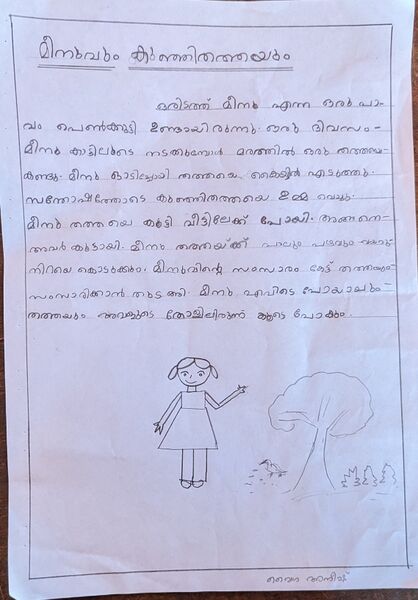 മീനുവും കുഞ്ഞിതത്തയും
ഒരിടത്ത് മീനു എന്ന ഒരു പാ-
വം പെൺകുട്ടി ഉണ്ടായിരുന്നു. ഒരു ദിവസം -
മീനു കാട്ടിലൂടെ നടക്കുമ്പോൾ മരത്തിൽ ഒരു തത്തയെ
കണ്ടു. മീനു ഓടിപ്പോയി തത്തയെ കൈയിൽ എടുത്തു.
സന്തോഷത്തോടെ കുഞ്ഞിതത്തയെ ഉമ്മ വെച്ചു.
മീനു തത്തയെ കൂട്ടി വീട്ടിലേക്ക് പോയി. അങ്ങനെ-
അവർ കൂടായി. മീനു തത്തയ്ക്ക് പാലും പഴവും
നിറയെ കൊടുക്കും. മീനുവിന്റെ സംസാരം കേട്ട് തത്തയും-
സംസാരിക്കാൻ തുടങ്ങി. മീനു എവിടെ പോയാലും-
തത്തയും അവളുടെ തോളിലിരുന്ന് കൂടെ പോകും.
വൈഗ അനീഷ്